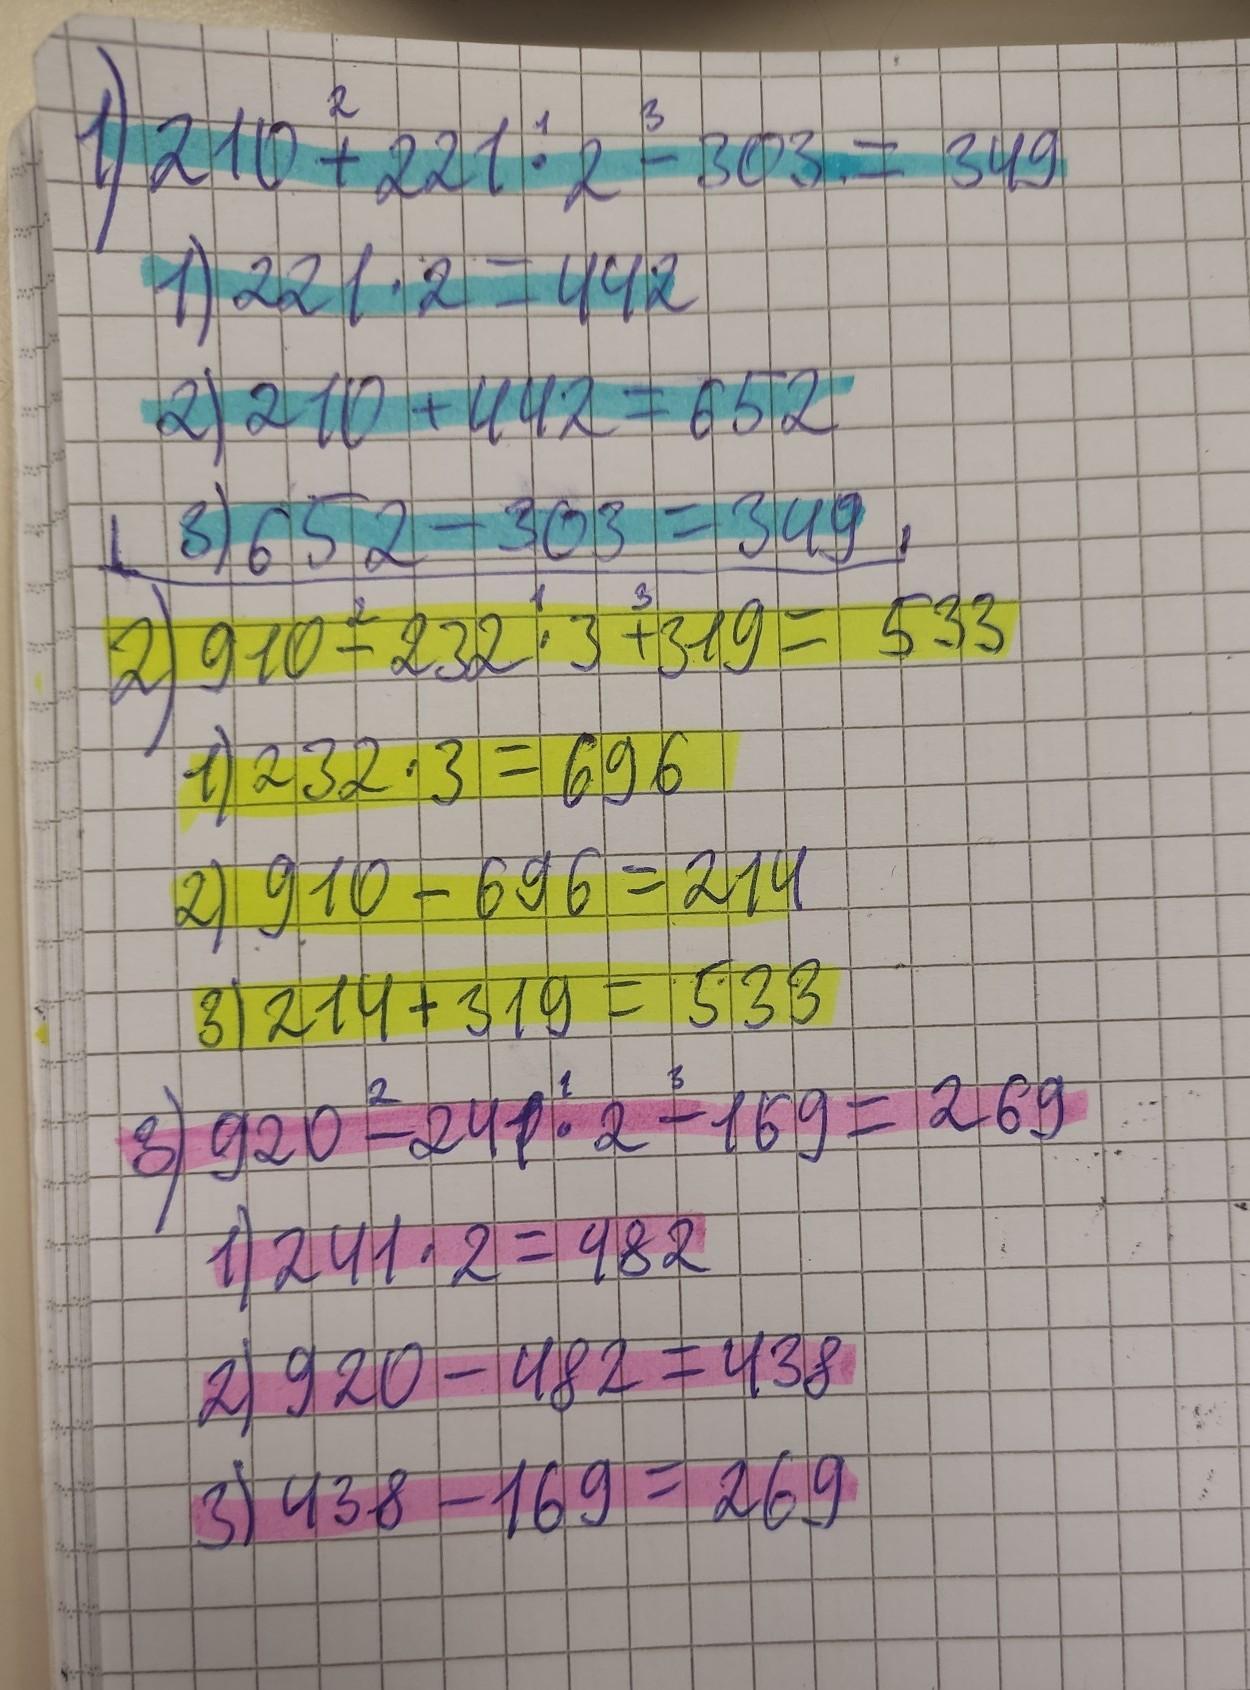 1) 210 +² 221 ·¹ 2 -³ 303 = 349
1) 221 · 2 = 442
2) 210 + 442 = 652
3) 652 - 303 = 349
2) 910 -² 232 ·¹ 3 +³ 319 = 533
1) 232 · 3 = 696
2) 910 - 696 = 214
3) 214 + 319 = 533
3) 920 -² 241 ·¹ 2 -³ 169 = 269
1) 241 · 2 = 482
2) 920 - 482 = 438
3) 438 - 169 = 269